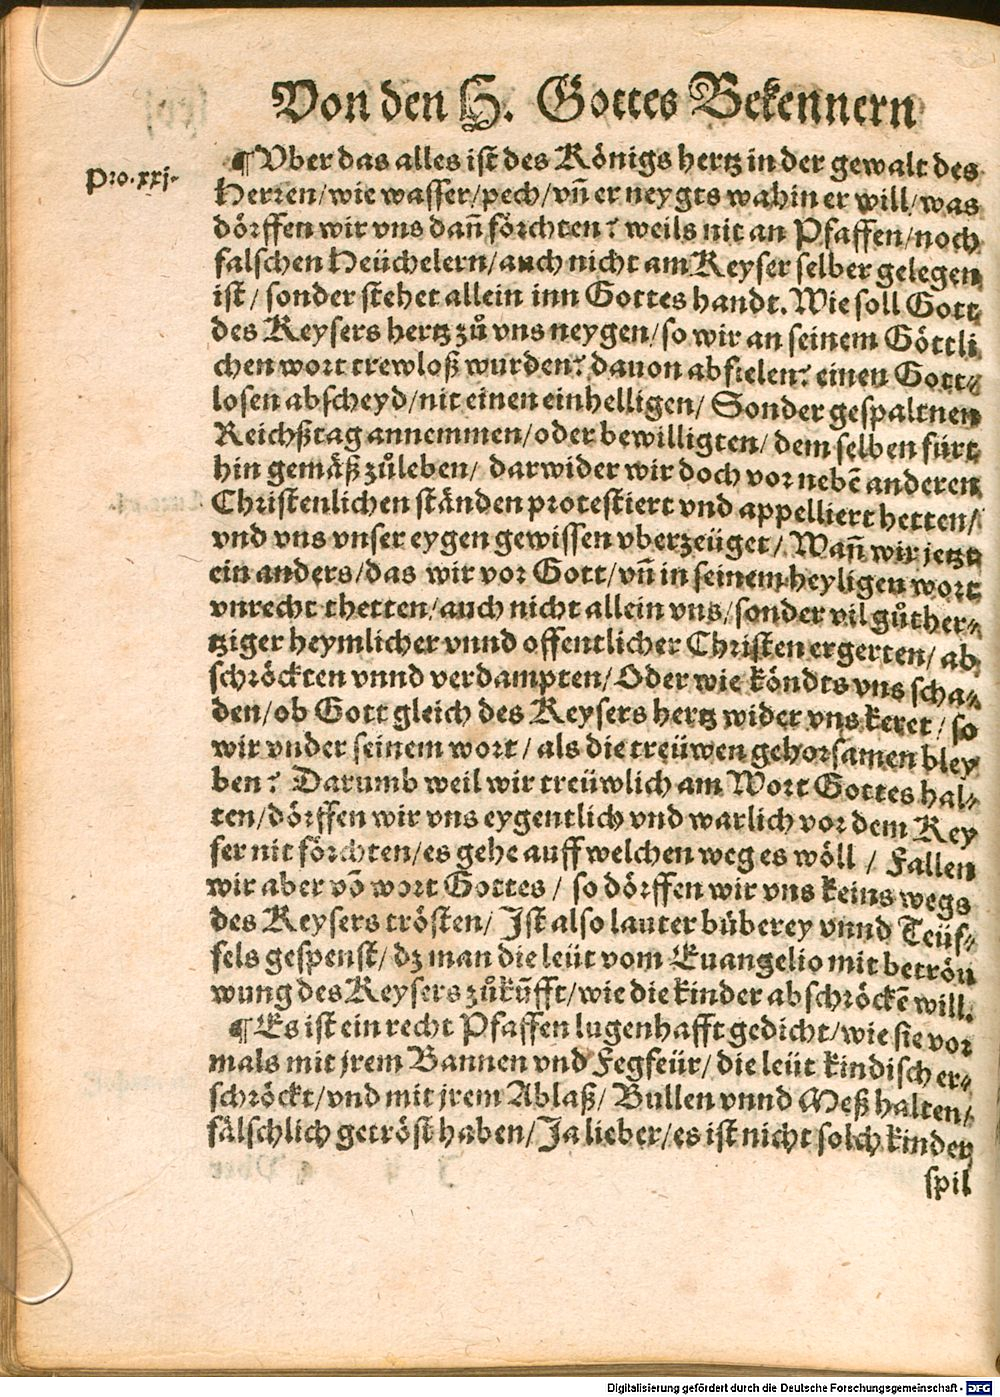 Von den H. Gottes Bekennern
Pro. xxj.
¶ Vber das alles ist des Königs hertz in der gewalt des
Herren/ wie wasser/ pech/ vñ er neygts wahin er will/ was
dörffen wir vns dañ förchten? weils nit an Pfaffen/ noch
falschen Heüchelern/ auch nicht am Keyser selber gelegen
ist/ sonder stehet allein inn Gottes handt. Wie soll Gott
des Keysers hertz zů vns neygen/ so wir an seinem Göttli
chen wort trewloß wurden? dauon abfielen? einen Gott⸗
losen abscheyd/ nit einen einhelligen/ Sonder gespaltnen
Reichßtag annemmen/ oder bewilligten/ dem selben fürt
hin gemäß zůleben/ darwider wir doch vor nebē anderen
Christenlichen ständen protestiert vnd appelliert hetten/
vnd vns vnser eygen gewissen vberzeüget/ Wañ wir jetzt
ein anders/ das wir vor Gott/ vñ in seinem heyligen wort
vnrecht thetten/ auch nicht allein vns/ sonder vil gůther⸗
tziger heymlicher vnnd offentlicher Christen ergerten/ ab
schröckten vnnd verdampten/ Oder wie köndts vns scha⸗
den/ ob Gott gleich des Keysers hertz wider vns keret/ so
wir vnder seinem wort/ als die treüwen gehorsamen bley
ben? Darumb weil wir treüwlich am Wort Gottes hal⸗
ten/ dörffen wir vns eygentlich vnd warlich vor dem Key
ser nit förchten/ es gehe auff welchen weg es wöll/ Fallen
wir aber vō wort Gottes/ so dörffen wir vns keins wegs
des Keysers trösten/ Ist also lauter büberey vnnd Teüf⸗
fels gespenst/ dz man die leüt vom Euangelio mit betröu
wung des Keysers zůkũfft/ wie die kinder abschröckē will.
¶ Es ist ein recht Pfaffen lugenhafft gedicht/ wie sie vor
mals mit jrem Bannen vnd Fegfeür/ die leüt kindisch er⸗
schröckt/ vnd mit jrem Ablaß/ Bullen vnnd Meß halten/
fälschlich getröst haben/ Ja lieber/ es ist nicht solch kinder
spil
Digitalisierung gefördert durch die Deutsche Forschungsgemeinschaft - DFG